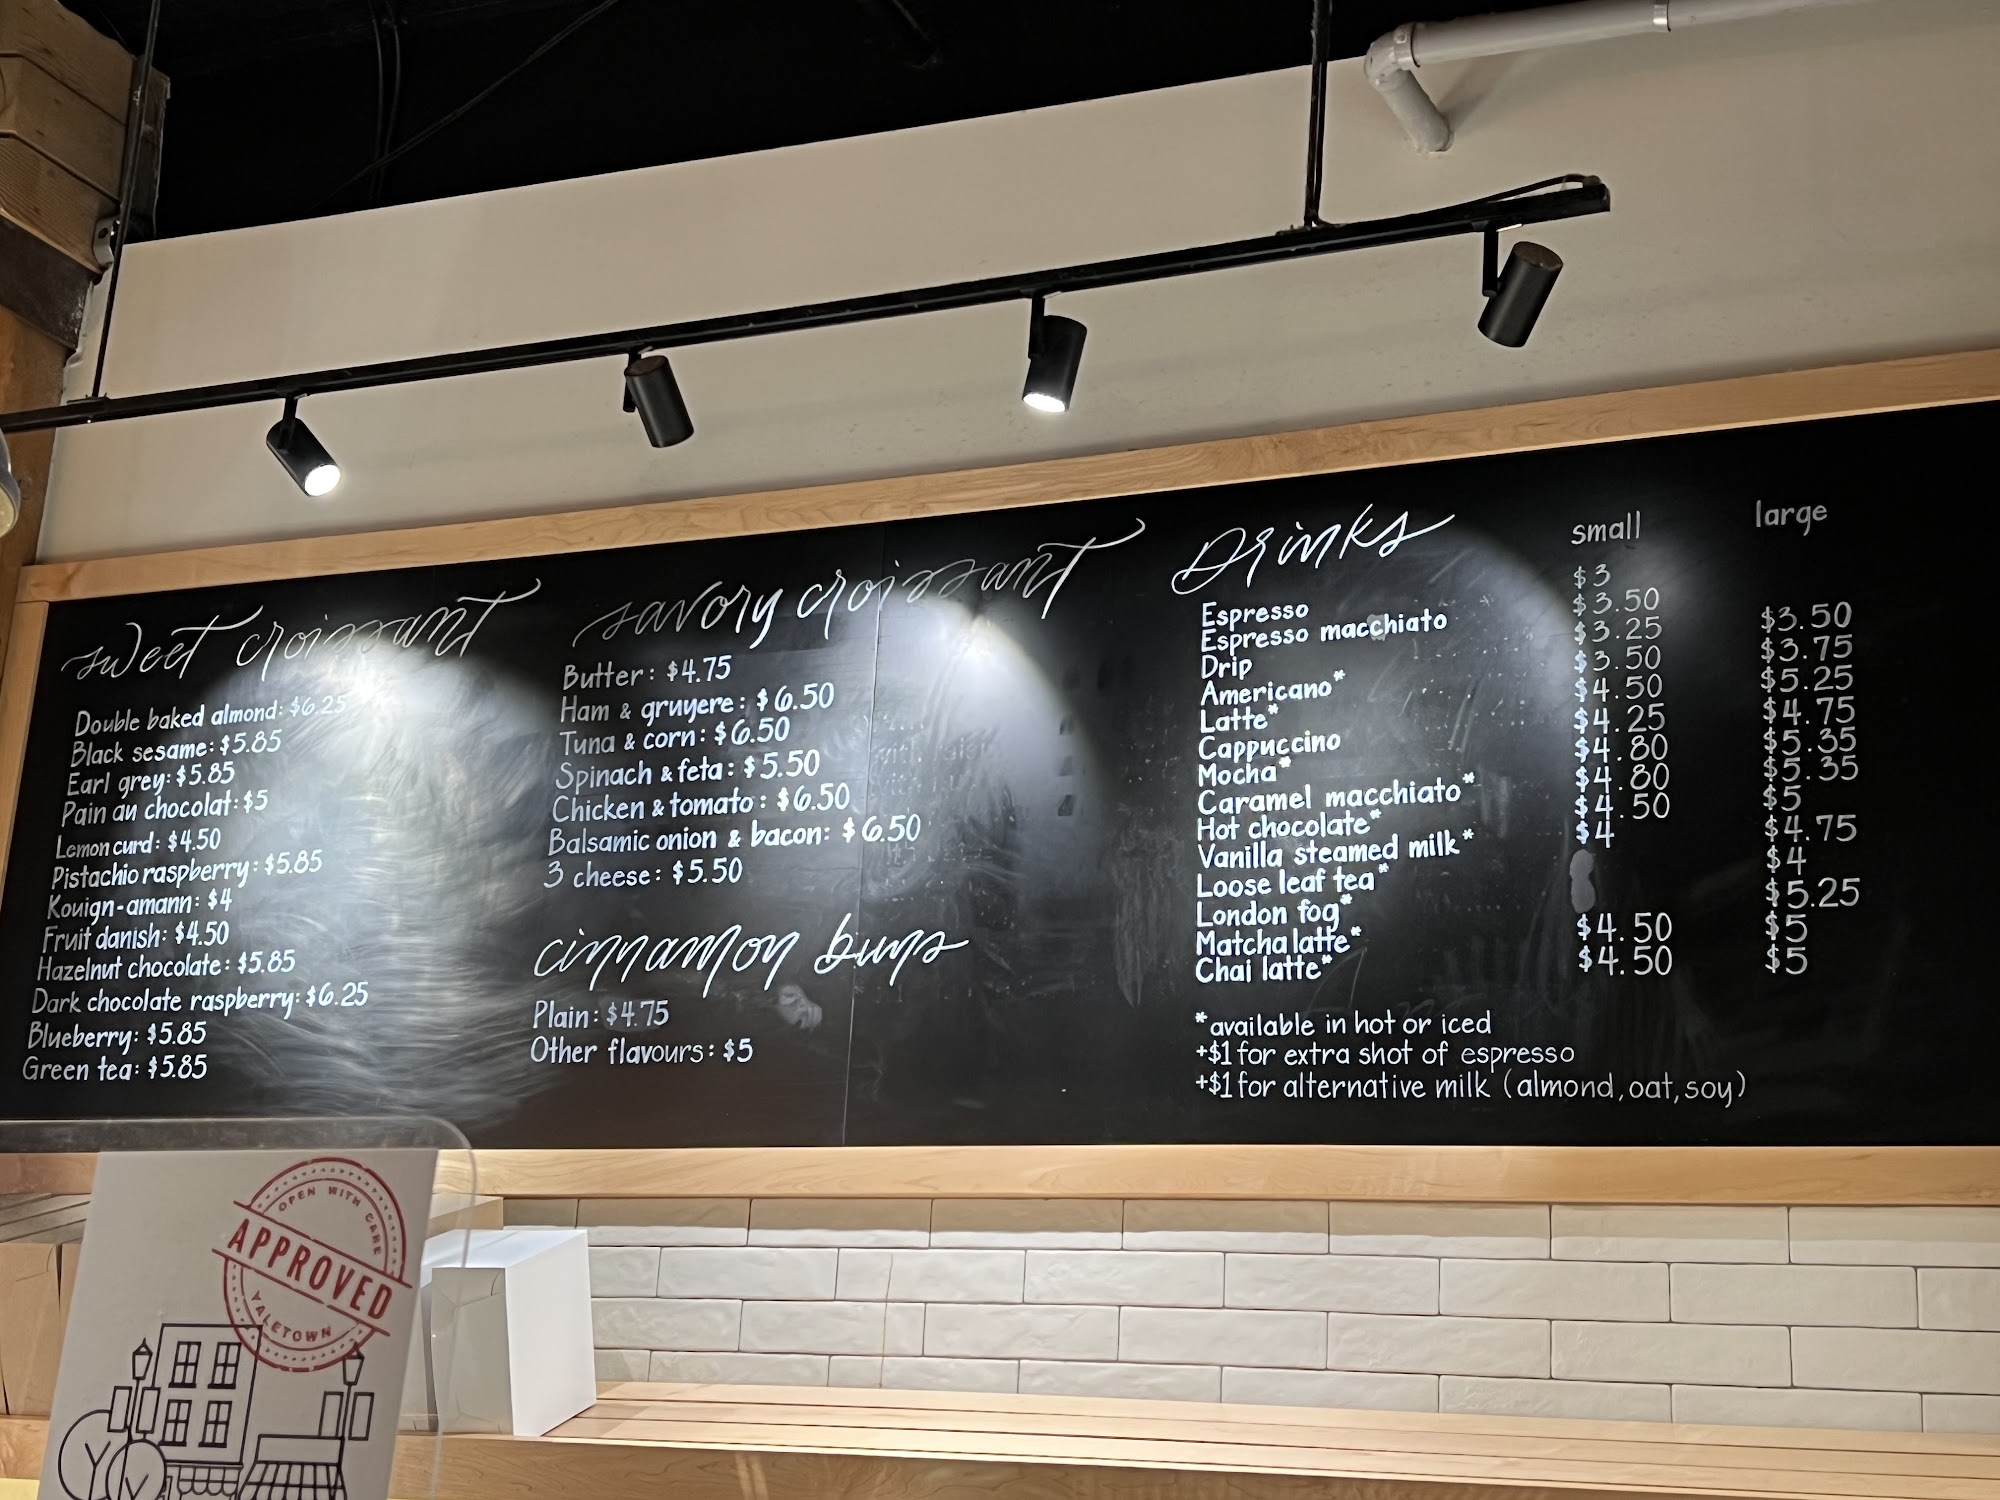 sweet croissant
Double baked almond: $6.25
Black sesame: $5.85
Earl grey: $5.85
Pain au chocolat: $5
Lemon curd: $4.50
Pistachio raspberry: $5.85
Kouign-amann: $4
Fruit danish: $4.50
Hazelnut chocolate: $5.85
Dark chocolate raspberry: $6.25
Blueberry: $5.85
Green tea: $5.85
savory croissant
Butter: $4.75
Ham & gruyere: $6.50
Tuna & corn: $6.50
Spinach & feta: $5.50
Chicken & tomato: $6.50
Balsamic onion & bacon: $6.50
3 cheese: $5.50
cinnamon buns
Plain: $4.75
Other flavours: $5
Drinks small large
Espresso $3
Espresso macchiato $3.50
Drip $3.25 $3.50
Americano* $3.50 $3.75
Latte* $4.50 $5.25
Cappuccino $4.25 $4.75
Mocha* $4.80 $5.35
Caramel macchiato* $4.80 $5.35
Hot chocolate* $4.50 $5
Vanilla steamed milk* $4 $4.75
Loose leaf tea* $4
London fog* $5.25
Matcha latte* $4.50 $5
Chai latte* $4.50 $5
*available in hot or iced
+$1 for extra shot of espresso
+$1 for alternative milk (almond, oat, soy)
OPEN WITH CARE
APPROVED
YALETOWN